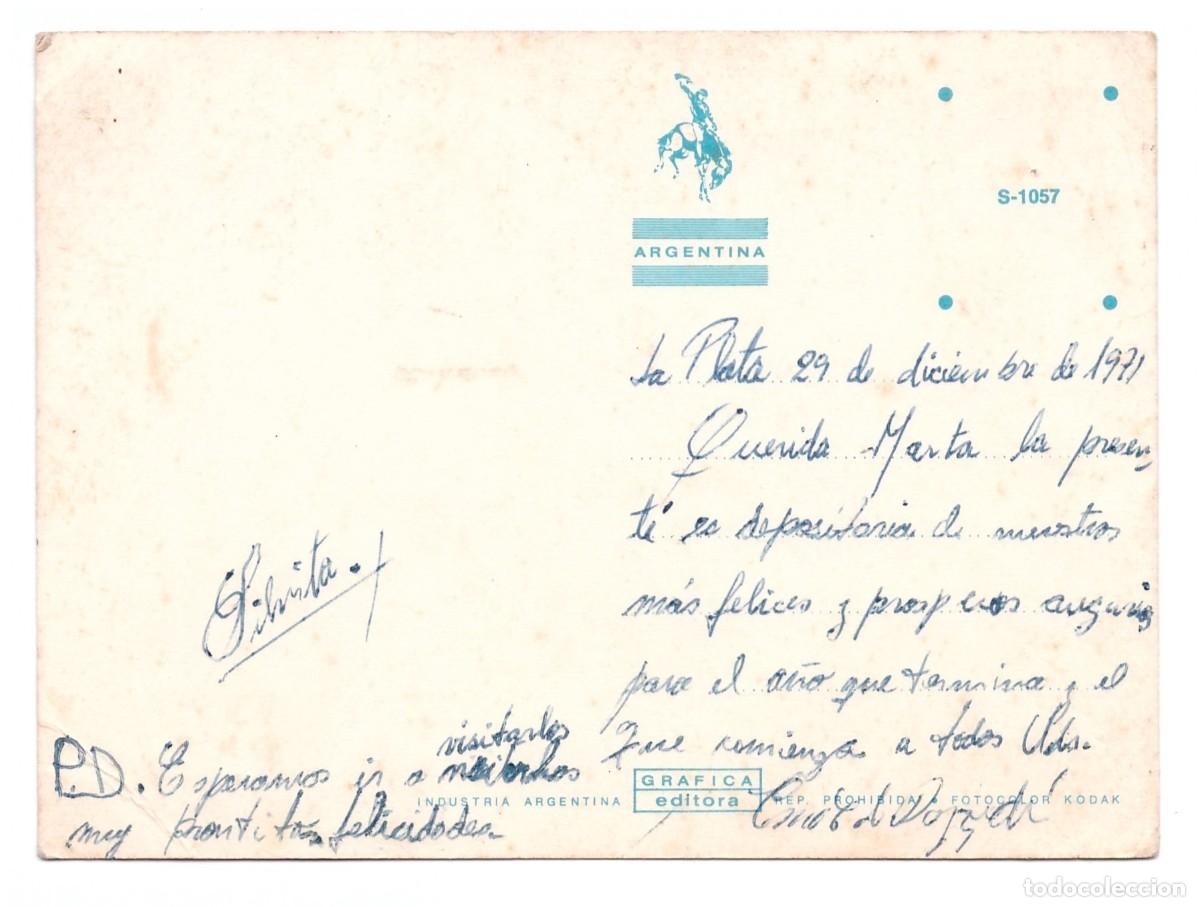 S-1057
ARGENTINA
La Plata 29 de diciembre de 1971
Querida Marta la presen-
te es depositaria de nuestros
más felices y prosperos augurios
para el año que termina y el
que comienza a todos Uds.
Silvita.
P.D. Esperamos ir a
visitarlos
muy prontito, felicidades
GRAFICA
editora
INDUSTRIA ARGENTINA
REP. PROHIBIDA • FOTOCOLOR KODAK
todocoleccion